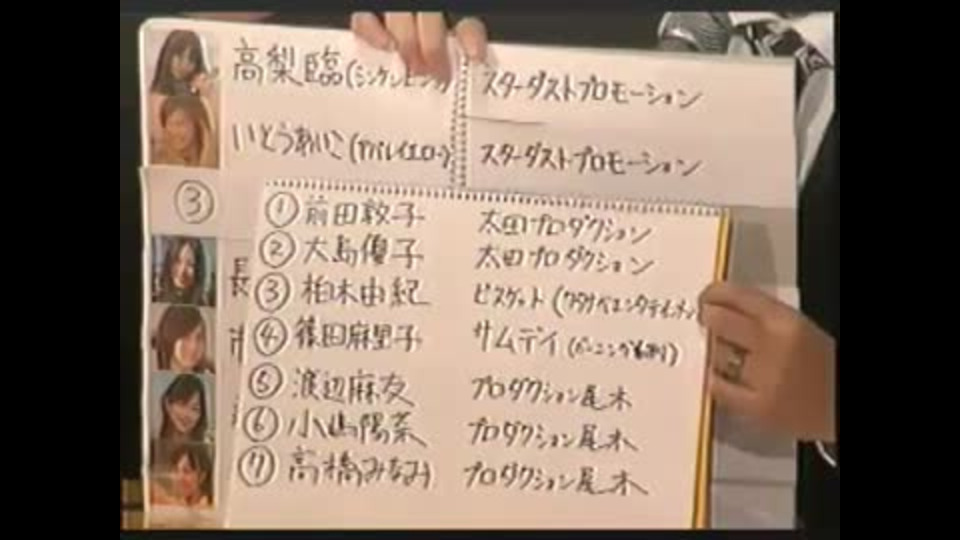 高梨臨(シンケンピンク) スターダストプロモーション
いとうあいこ(アバレイエロー) スターダストプロモーション
③
① 前田敦子 太田プロダクション
② 大島優子 太田プロダクション
長
③ 柏木由紀 ビスケット(ワタナベエンタテインメン
④ 篠田麻里子 サムデイ(バーニング系列)
⑤ 渡辺麻友 プロダクション尾木
⑥ 小嶋陽菜 プロダクション尾木
⑦ 高橋みなみ プロダクション尾木